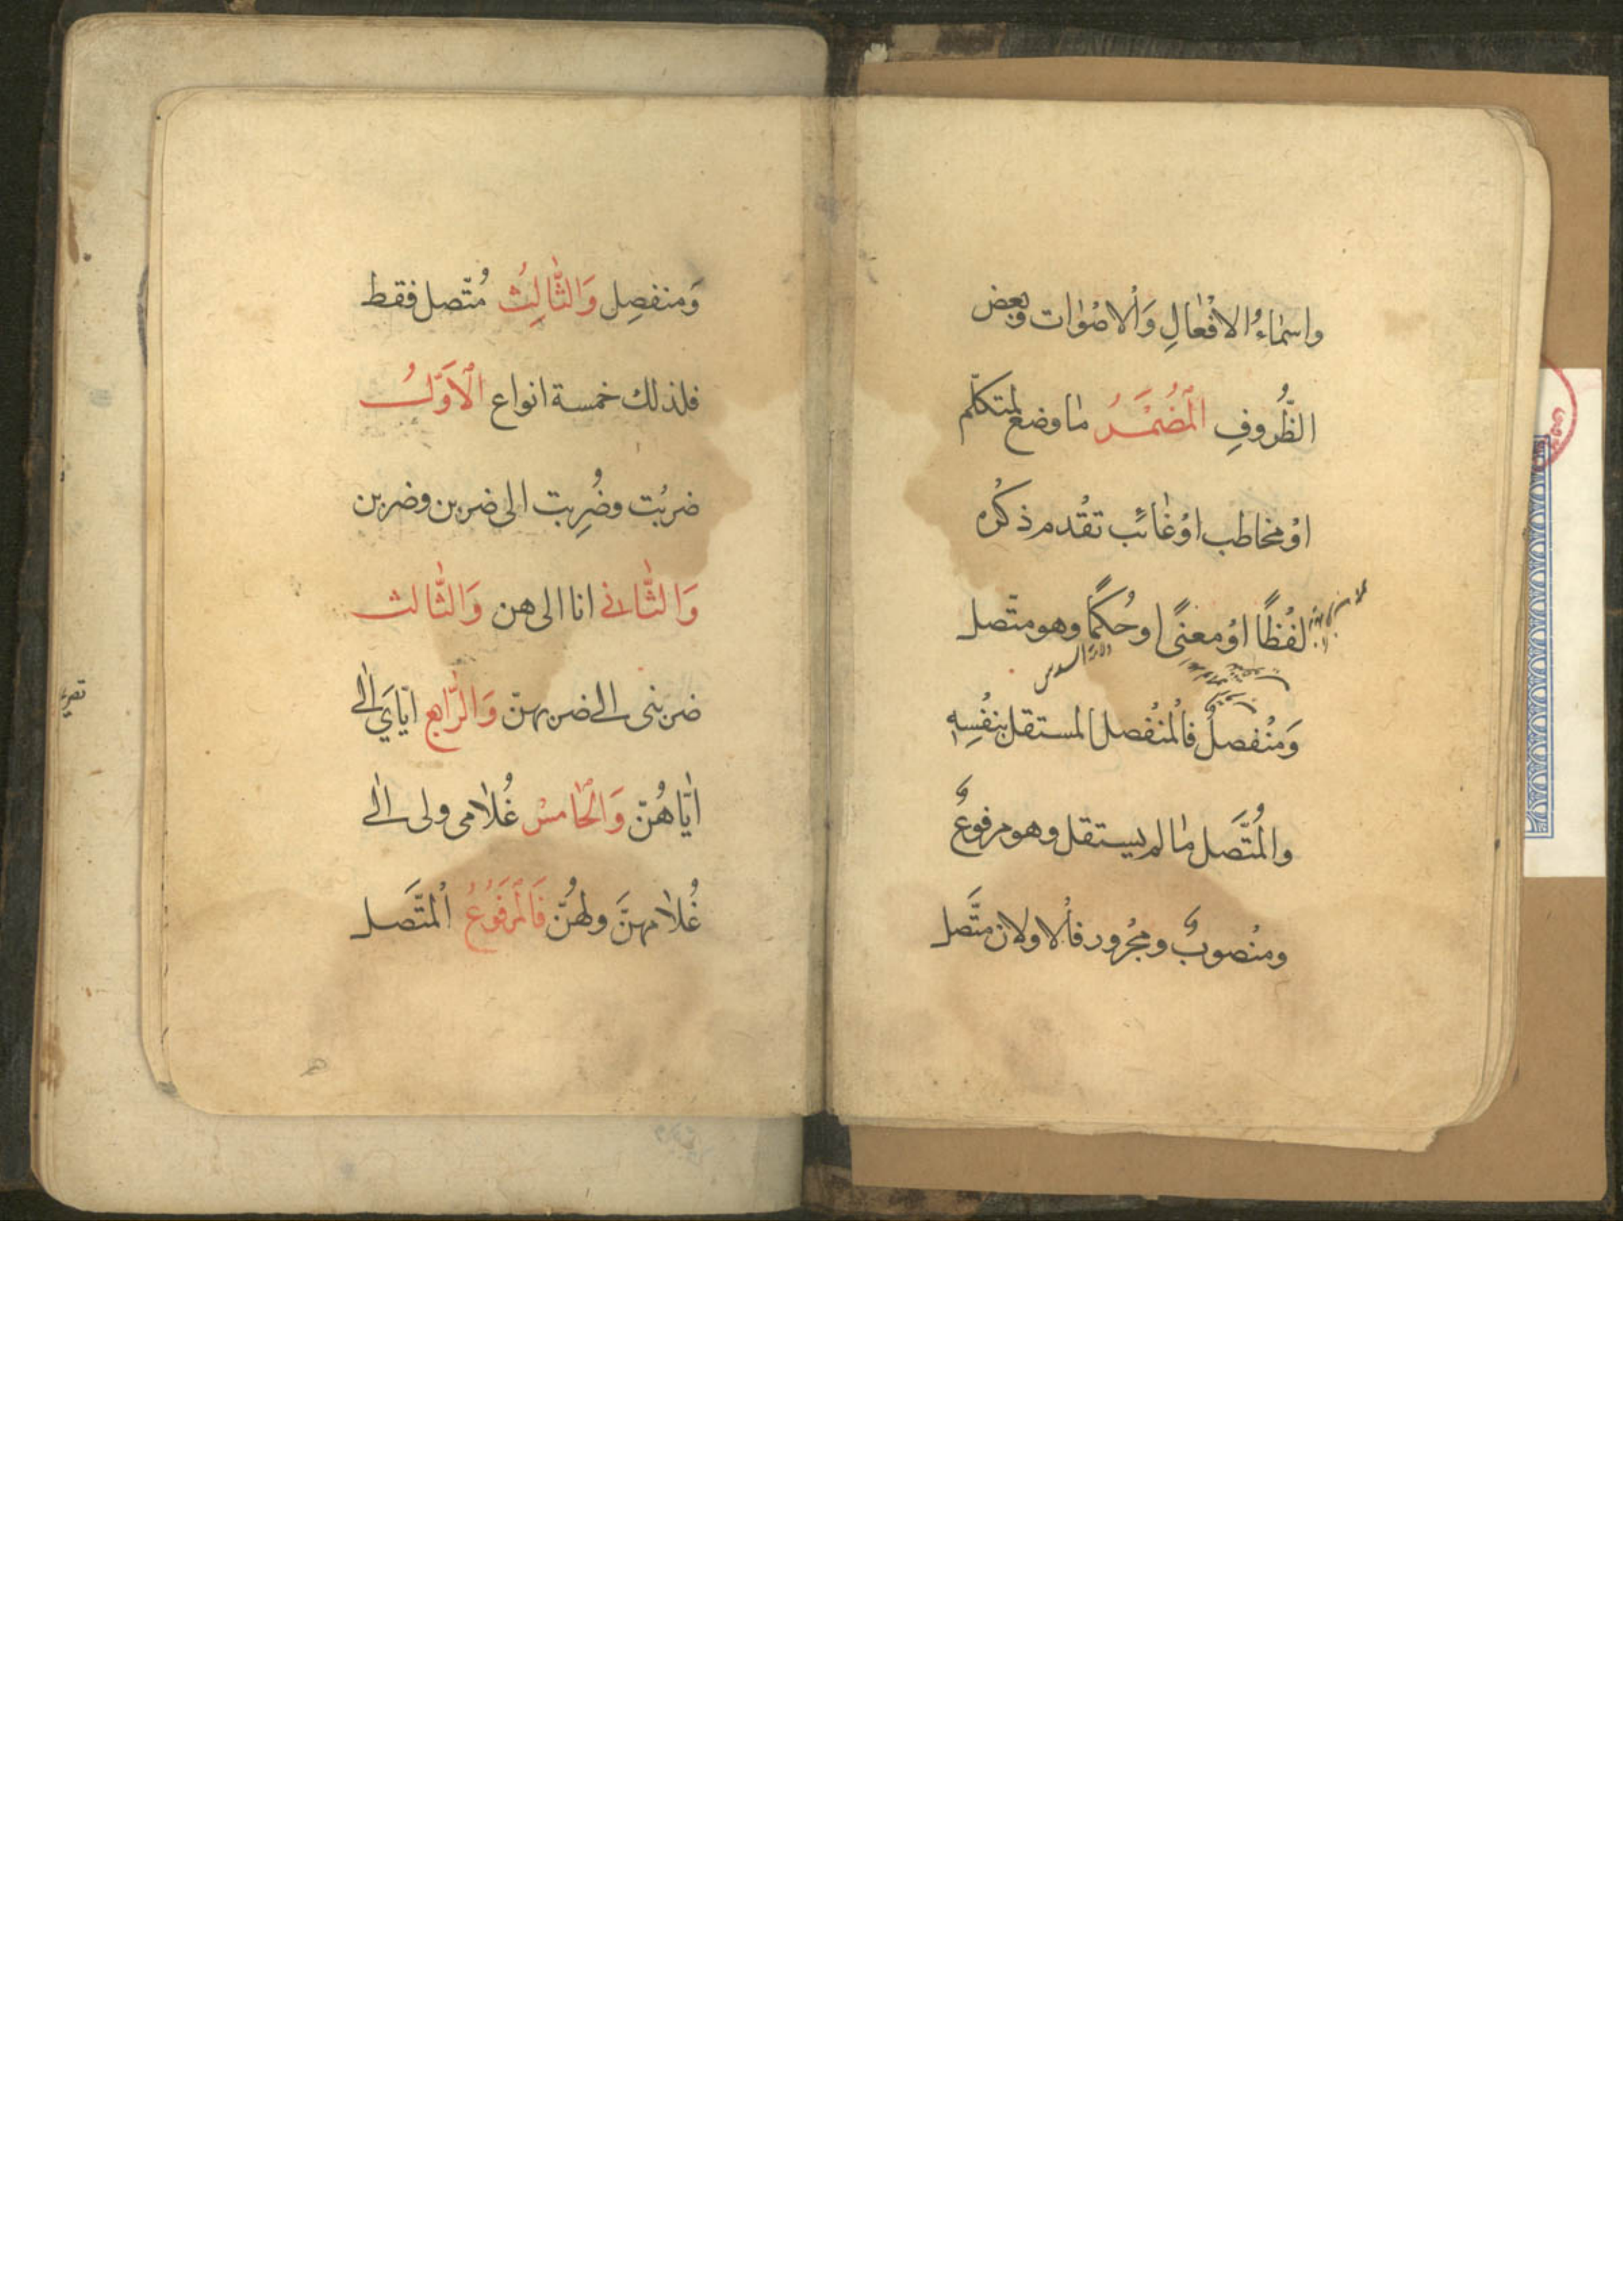 واسماءُ الافْعالِ وَالْاصْوات وبعض
الظُّروفِ المُضْمَرُ ما وضع لمتكلّم
اوْ مخاطب اوْ غائب تقْدم ذكْره
لفْظًا اوْ معنىً او حُكمًا وهو متّصل
وَمنْفصلٌ فالْمنْفصل المستقل بنفْسِهِ
والمُتَّصل ما لم يستقل وهو مرفوعٌ
ومنْصوبٌ ومجْرور فالْاولان متَّصل
وَمنفصِل وَالثَّالِثُ مُتّصل فقط
فلذلك خمسة انواع الْاَوَّلُ
ضربْت وضُرِبت الى ضربن وضربن
وَالثَّانی انا الى هن وَالثَّالث
ضربنى الى ضربهنّ وَالرَّابع ايّايَ الى
ايّاهُنّ وَالْخامسْ غُلامى ولى الى
غُلامهنَّ ولهُنّ فَالْمَرْفَوُعُ الْمتَّصل